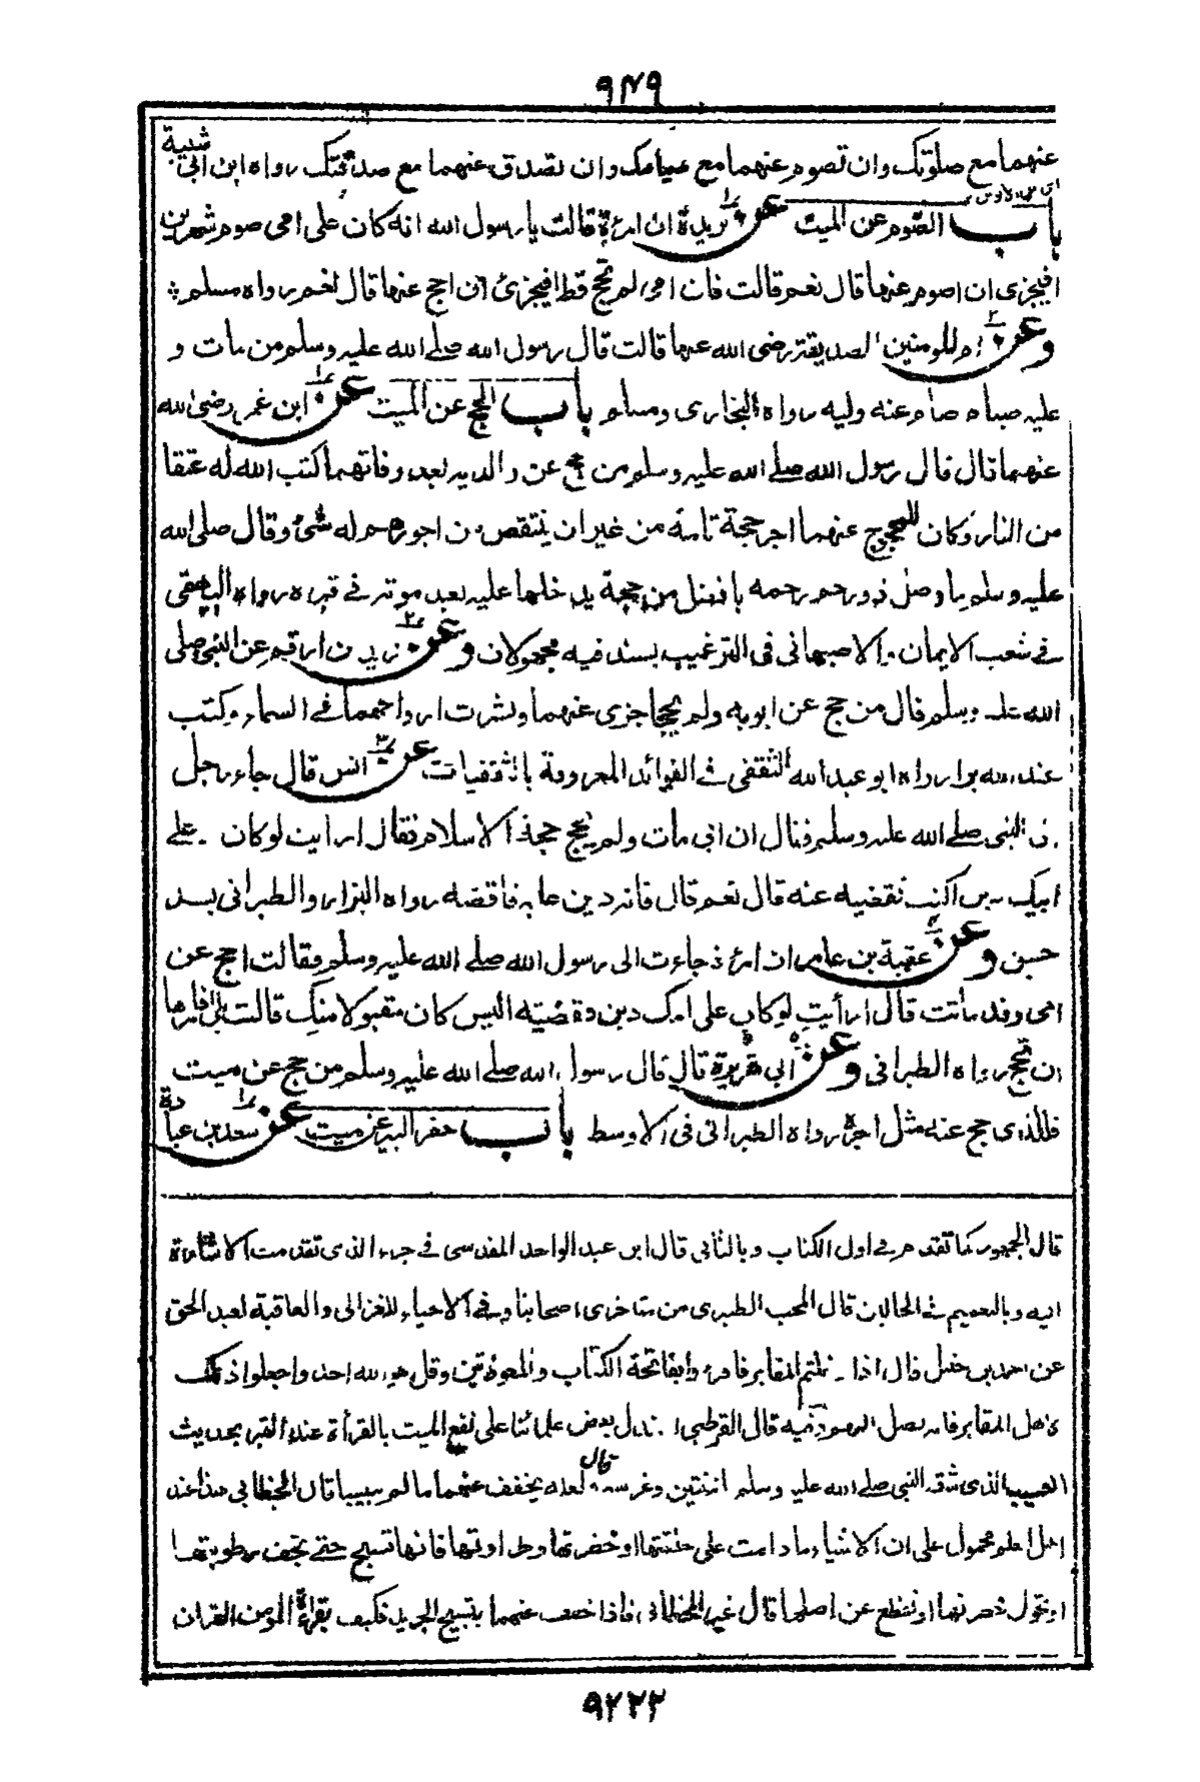 ٩٣٩
عنهما مع صلوتک وان تصوم عنهما مع صیامک وان تصدق عنهما مع صدقتک رواه ابن ابی شیبة
باب الصوم عن المیت عن بریدة ان امرءة قالت یا رسول الله انه کان علی امی صوم شهرین
افیجزی ان اصوم عنها قال نعم قالت فان امی لم تحج قط افیجزئ ان احج عنها قال نعم رواه مسلم
وعن ام المومنین الصدیقة رضی الله عنها قالت قال رسول الله صلے الله علیه وسلم من مات و
علیه صیام صام عنه ولیه رواه البخاری ومسلم باب الحج عن المیت عن ابن عمر رضی الله
عنهما قال قال رسول الله صلے الله علیه وسلم من حج عن والدیه بعد وفاتهما کتب الله له عتقا
من النار وکان للمحجوج عنهما اجر حجة تامة من غیر ان ینتقص من اجورهم له شئ وقال صلی الله
علیه وسلم ما وصل ذو رحم رحمه بافضل من حجة یدخلها علیه بعد موته فے قبره رواه البیهقی
فے شعب الایمان والاصبهانی فی الترغیب بسند فیه مجهولان وعن زید بن ارقم عن النبی صلی
الله علیه وسلم قال من حج عن ابویه ولم یحجا جزی عنهما ونشرت ارواحهما فے السماء وکتب
عند الله برا رواه ابو عبد الله الثقفی فے الفوائد المعروفة بالثقفیات عن انس قال جاء رجل
الی النبی صلے الله علیه وسلم فقال ان ابی مات ولم یحج حجة الاسلام فقال ارایت لو کان علے
ابیک دین اکنت تقضیه عنه قال نعم قال فانه دین علیه فاقضه رواه البزار والطبرانی بسند
حسن وعن عقبة بن عامر ان امرءة جاءت الی رسول الله صلے الله علیه وسلم فقالت احج عن
امی وقد ماتت قال ارأیت لو کان علی امک دین قضیته الیس کان مقبولا منک قالت بلی فامرها
ان تحج رواه الطبرانی وعن ابی هریرة قال قال رسول الله صلے الله علیه وسلم من حج عن میت
فللذی حج عنه مثل اجره رواه الطبرانی فی الاوسط باب حفر البیر عن میت عن سعد بن عبادة
قال الجمهور کما تقدم فے اول الکتاب وبالثانی قال ابن عبد الواحد المقدسی فے جزء الذی تقدمت الاشارة
الیه وبالتعمیم فے الحالین قال المحب الطبری من متاخری اصحابنا وفے الاحیاء للغزالی والعاقبة لعبد الحق
عن احمد بن حنبل قال اذا دخلتم المقابر فاقرءوا بفاتحة الکتاب والمعوذتین وقل هو الله احد واجعلوا ذلک
لاهل المقابر فانه یصل الیهم وفیه قال القرطبی استدل بعض علمائنا علی نفع المیت بالقرأة عند القبر بحدیث
العسیب الذی شقه النبی صلے الله علیه وسلم اثنتین وغرسه وقال لعله یخفف عنهما ما لم ییبسا قال الخطابی هذا عند
اهل العلم محمول علی ان الاشیاء ما دامت علی خلقتها او خضرتها وطراوتها فانها تسبح حتے تجف رطوبتها
او تحول خضرتها او تقطع عن اصلها قال غیر الخطابی فاذا خفف عنهما بتسبیح الجرید فکیف بقراءة المومن القران
٩٢٣٣